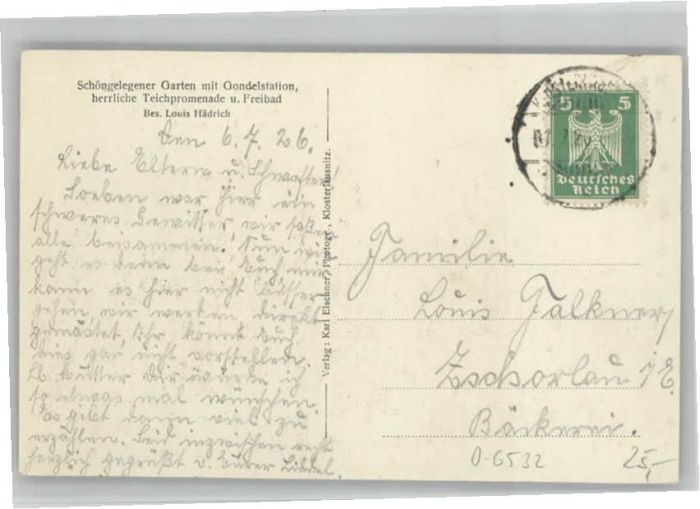 Schöngelegener Garten mit Gondelstation,
herrliche Teichpromenade u. Freibad
Bes. Louis Hädrich
Den 6.7.26.
Liebe Eltern u. Schwester!
Soeben war hier ein
schweres Gewitter, wir saßen
alle beisammen. Nun wie
geht es denn bei Euch, mir
kann es hier nicht besser
gehen, wir werden direkt
gemästet, Ihr könnt Euch
dies gar nicht vorstellen.
Lb. Mutter Dir würde ich
so etwas mal wünschen.
Es gibt dann viel zu
erzählen. Seid inzwischen recht
herzlich gegrüßt v. Eurer
Verlag: Karl Elschner, Photogr., Klosterlausnitz.
5 5
Deutsches
Reich
Familie
Louis Falkner
Zschorlau i/E.
Bäckerei.
0-6532
25,-